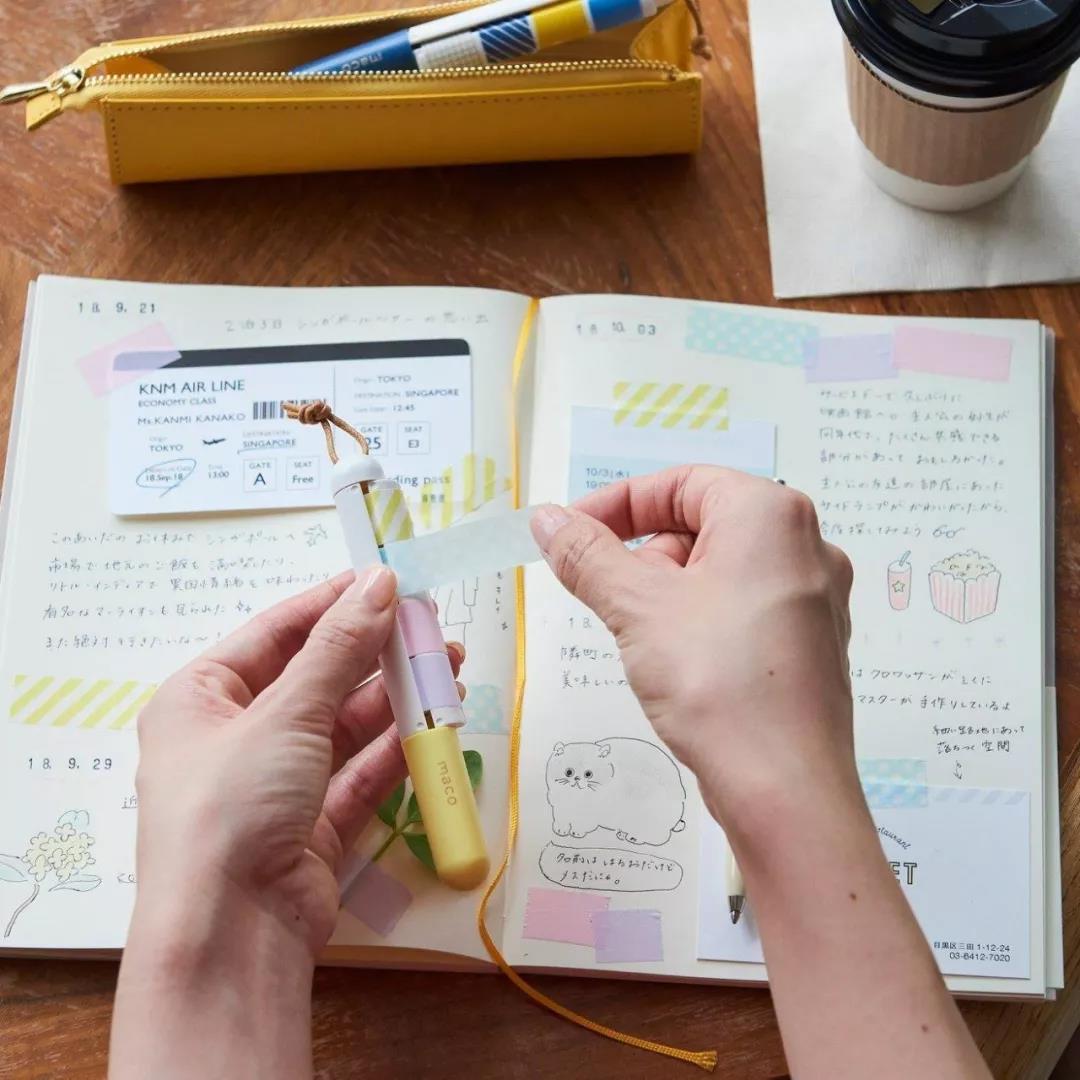 maco
18. 9. 21
2泊3日 シンガポールツアーの思い出
KNM AIR LINE
ECONOMY CLASS
Ms.KANMI KANAKO
Origin TOKYO
DESTINATION SINGAPORE
12:45
TOKYO
SINGAPORE
18.Sep.18
Time 13:00
GATE
A
SEAT
Free
GATE
25
SEAT
E3
ding pass
このあいだの お休みで シンガポールへ
市場で 地元の ご飯を 満喫したり、
リトル・インディアで 異国情緒を 味わったり
有名なマーライオンも 見られた
また絶対 行きたいな〜!
18. 9. 29
maco
18 10. 03
10/3(水)
19:0
サービスデーで 久しぶりに
映画館へ。主人公の女の子が
同年代で、たくさん共感できる
部分があって おもしろかった。
主人公の友達の部屋にあった
サイドランプが かわいかったから、
今度探してみよう
18
隣町の
美味しいの
は クロワッサンが
マスターが 手作りしているよ
落ちつく 空間
名前は はちおだけど
メスだにゃ。
estaurant
ET
目黒区三田 1-12-24
03-6412-7020